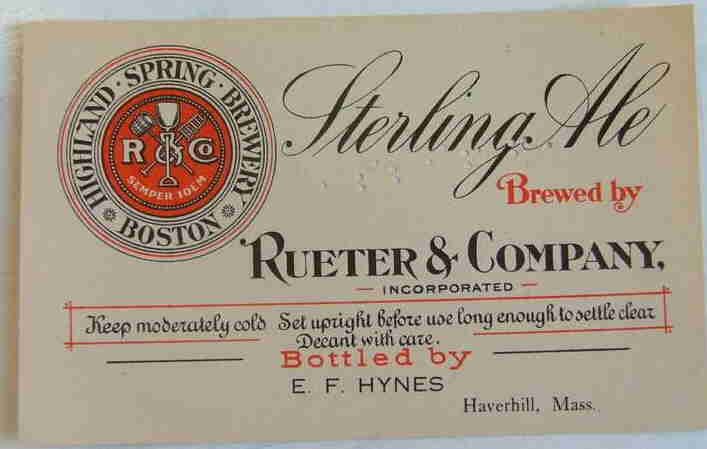 HIGHLAND · SPRING · BREWERY
BOSTON
R & Co
SEMPER IDEM
Sterling Ale
Brewed by
RUETER & COMPANY,
INCORPORATED
Keep moderately cold Set upright before use long enough to settle clear
Decant with care.
Bottled by
E. F. HYNES
Haverhill, Mass.